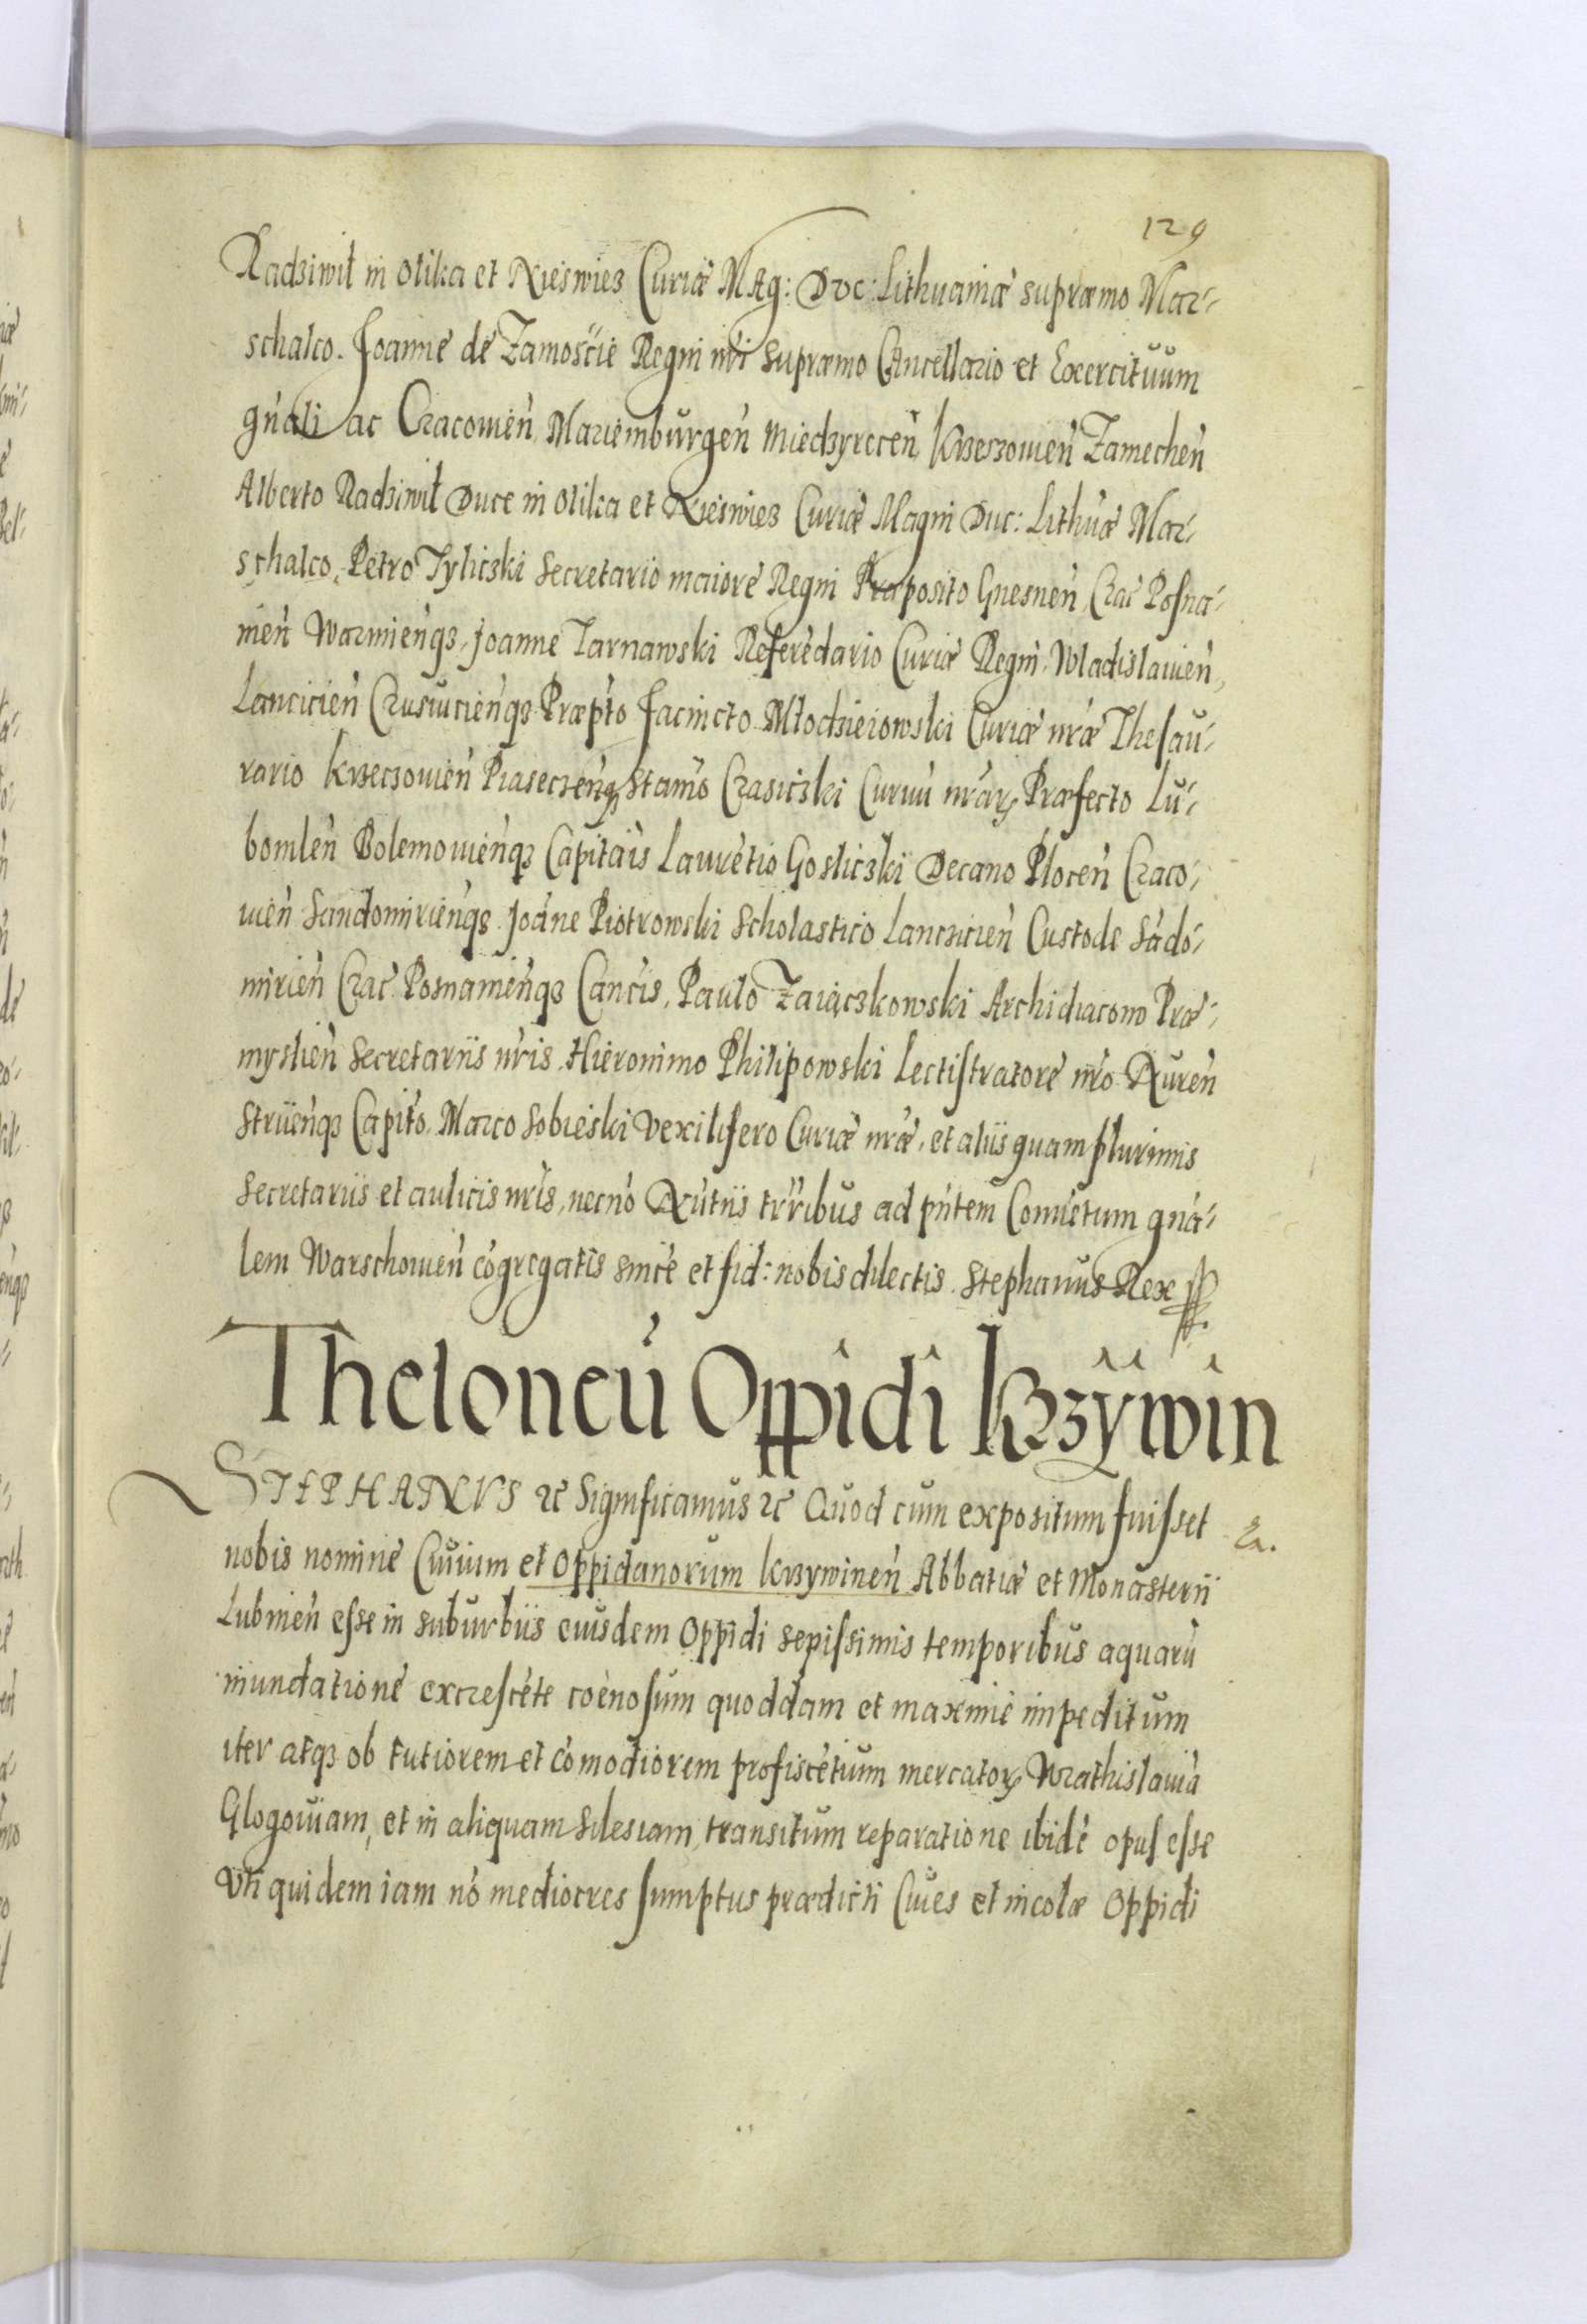 129
Radziwił in Olika et Nieswież Curiæ Mag: Duc: Lithuaniæ supræmo Mar-
schalco. Joanne de Zamoscie Regni nri supræmo Cancellario et Exercituum
gnali ac Cracouien, Mariemburgen Miedzyrecen, Krzeszouien Zamechen
Alberto Radziwił Duce in Olika et Nieswież Curiæ Magni Duc: Lithuæ Mar-
schalco, Petro Tyliczki Secretario maiore Regni Præposito Gnesnen, Crac Posna-
nien Warmienqz, Joanne Tarnawski Referedario Curiæ Regni, Wladislauien,
Lancicien Crusuicienqz Præpto Jacincto Młodzieiowski Curiæ nræ Thesau-
rario Krzeczouien Piasecznqz Stanio Crasiczki Curuu nrarz Præfecto Lu-
bomlen Bolemouienqz Capitais Lauretio Gosliczki Decano Plocen Craco-
uien Sandomirienqz. Joane Piotrowski Scholastico Lanczicien Custode Sado-
mirien Crac Posnamienqz Cancis, Paulo Zaiączkowski Archidiacono Præ-
myslien Secretariis nris. Hieronimo Philipowski Lectistratore nro Nuren
Struenqz Capito. Marco Sobieski Vexilifero Curiæ nræ, et aliis quam plurimis
Secretariis et aulicis nris, necno Nutiis trribus ad pntem Conuetum gna-
lem Warschouien cogregatis since et fid: nobis dilectis. Stephanus Rex
Theloneu Oppidi Krzÿwin
STEPHANVS etc Significamus etc Quod cum expositum fuisset
nobis nomine Ciuium et Oppidanorum Krzywinen Abbatiæ et Monasterii
Lubinen esse in suburbiis eiusdem Oppidi sepissimis temporibus aquaru
inundatione excrescete coenosum quoddam et maxime impeditum
iter atqz ob tutiorem et comodiorem profiscetium mercatorz Wrathislauia
Glogouiam, et in aliquam Silesiam, transitum reparatione ibide opus esse
Vti quidem iam no mediocres sumptus prædicti Ciues et incolæ Oppidi